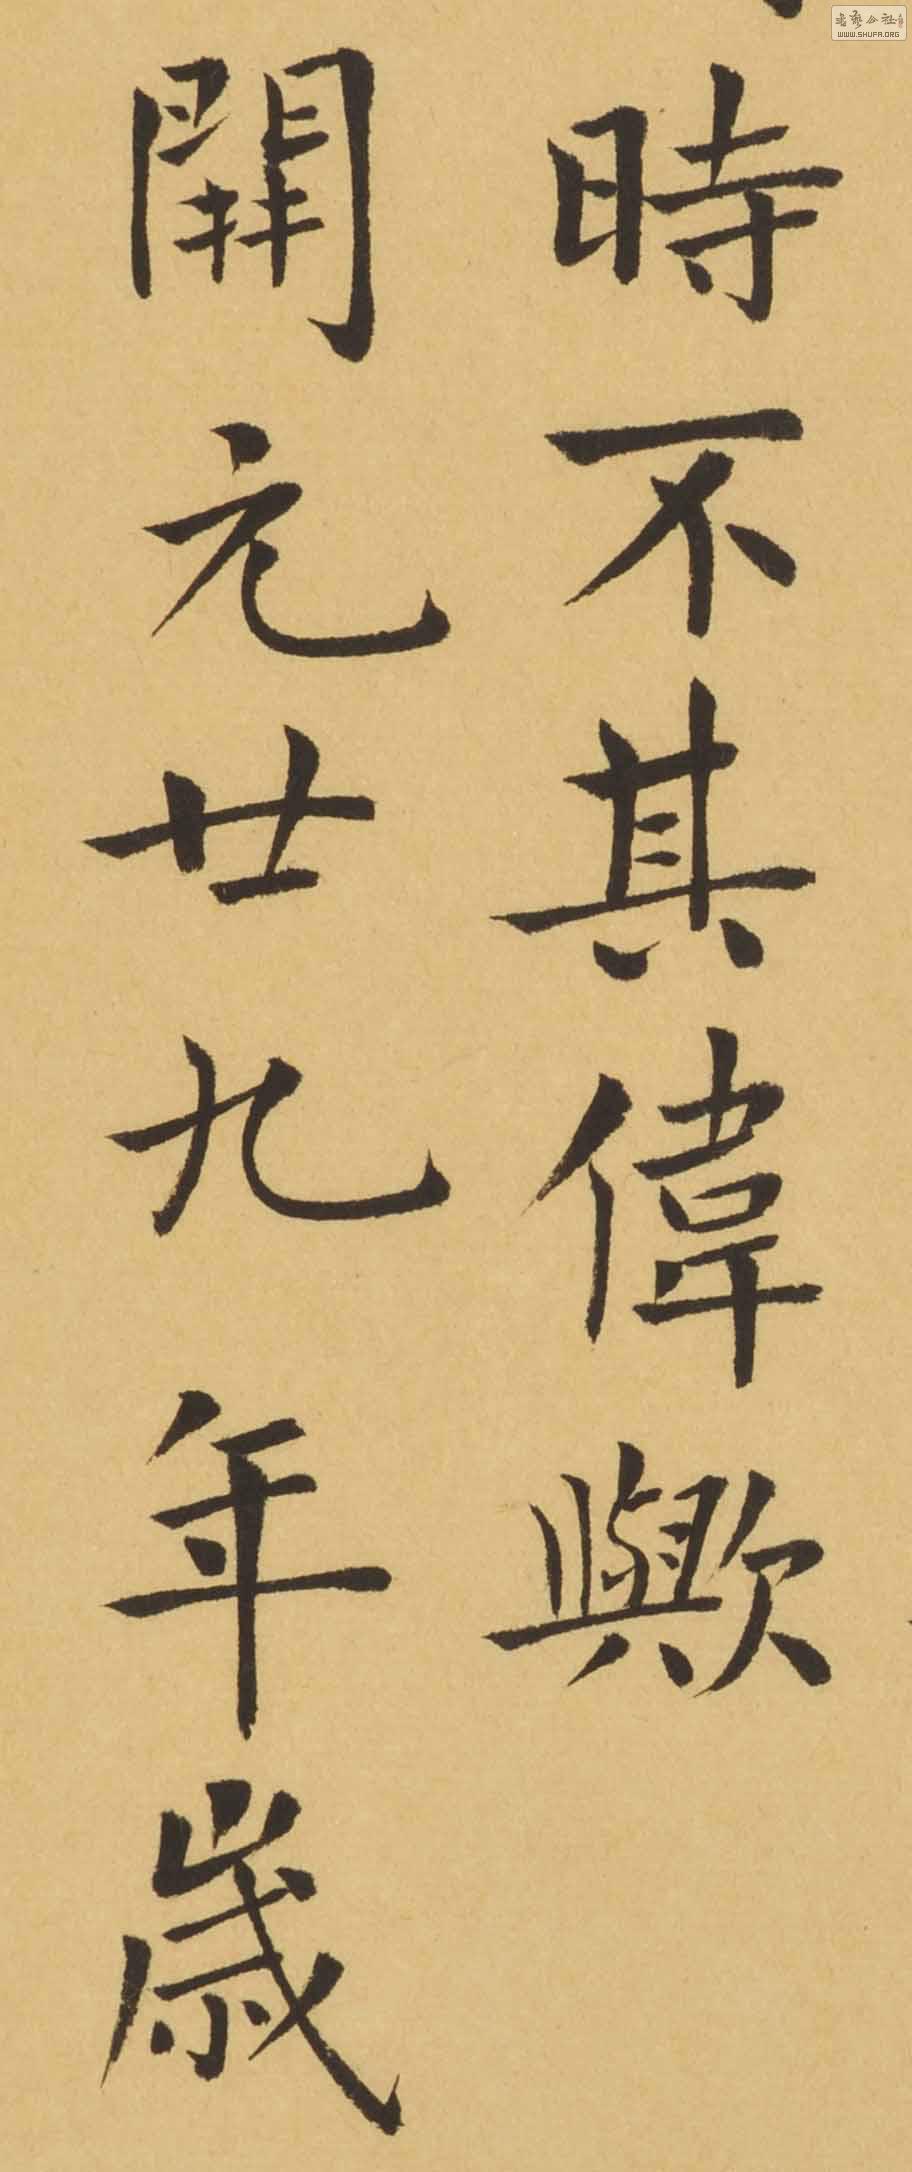 時不其偉歟
開元廿九年歲
書藝公社
WWW.SHUFA.ORG